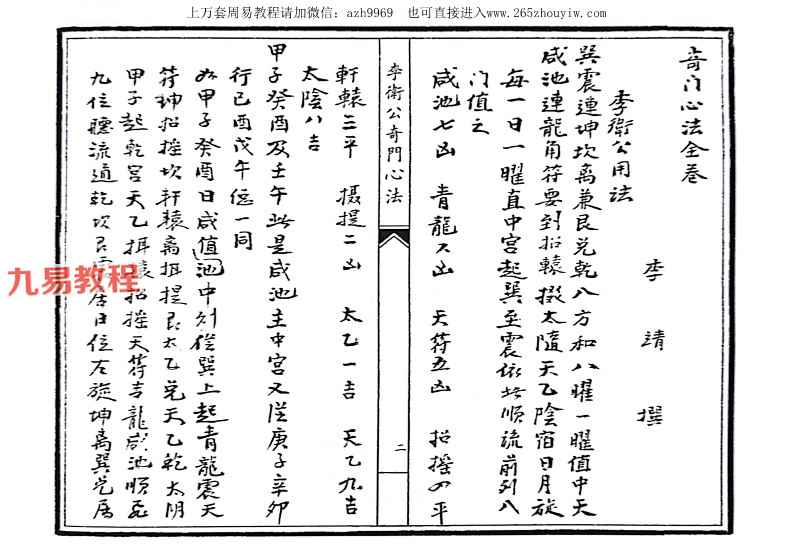 上万套周易教程请加微信：azh9969 也可直接进入www.265zhouyiw.com
奇门心法全卷
李靖撰
李衛公用法
巽震連坤坎离兼艮兑乾八方和八曜一曜值中天
咸池連龍角符要到招轅摄太隨天乙陰宿日月旋
每一日一曜直中宮起巽至震依此順流前列八
门值之
咸池七凶 青龍六凶 天符五凶 招摇四平
李衛公奇門心法
二
軒轅三平 摄提二凶 太乙一吉 天乙九吉
太陰八吉
甲子癸酉及壬午此是咸池主中宮又從庚子辛卯
行己酉戊午便一同
如甲子癸酉日咸值池中列從巽上起青龍震天
符坤招摇坎軒轅离提艮太乙兑天乙乾太阴
甲子起乾宮天乙轅招摇天符青龍咸池順
九位流道乾坎艮居日位左旋坤离巽兑
九易教程